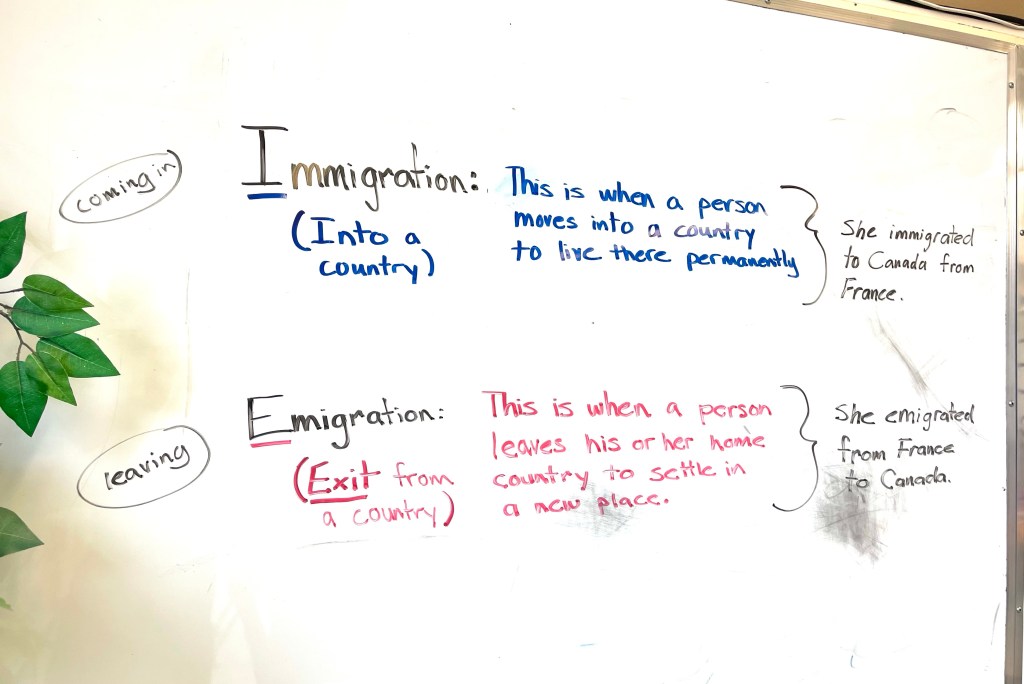 coming in
Immigration:
(Into a
country)
This is when a person
moves into a country
to live there permanently
She immigrated
to Canada from
France.
leaving
Emigration:
(Exit from
a country)
This is when a person
leaves his or her home
country to settle in
a new place.
She emigrated
from France
to Canada.